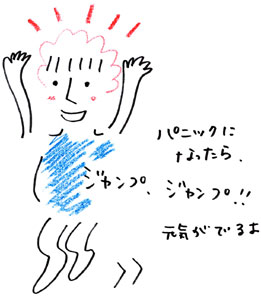 パニックに
なったら、
ジャンプ、ジャンプ!!
元気がでるよ